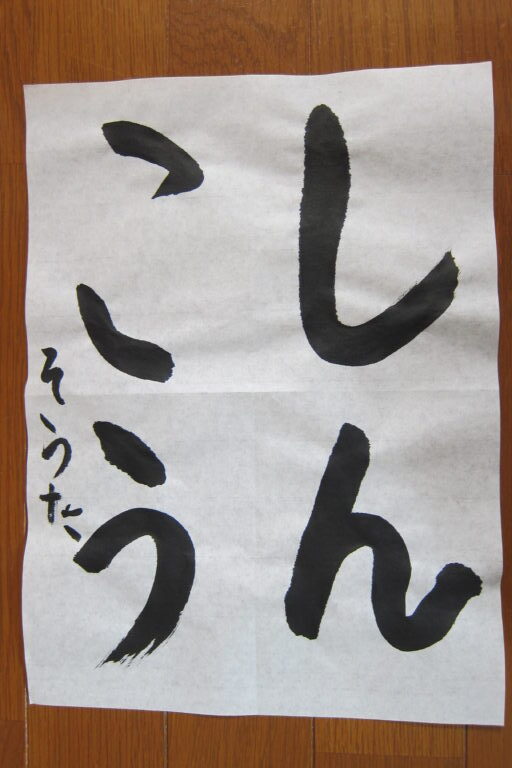 しん
こう
そうた